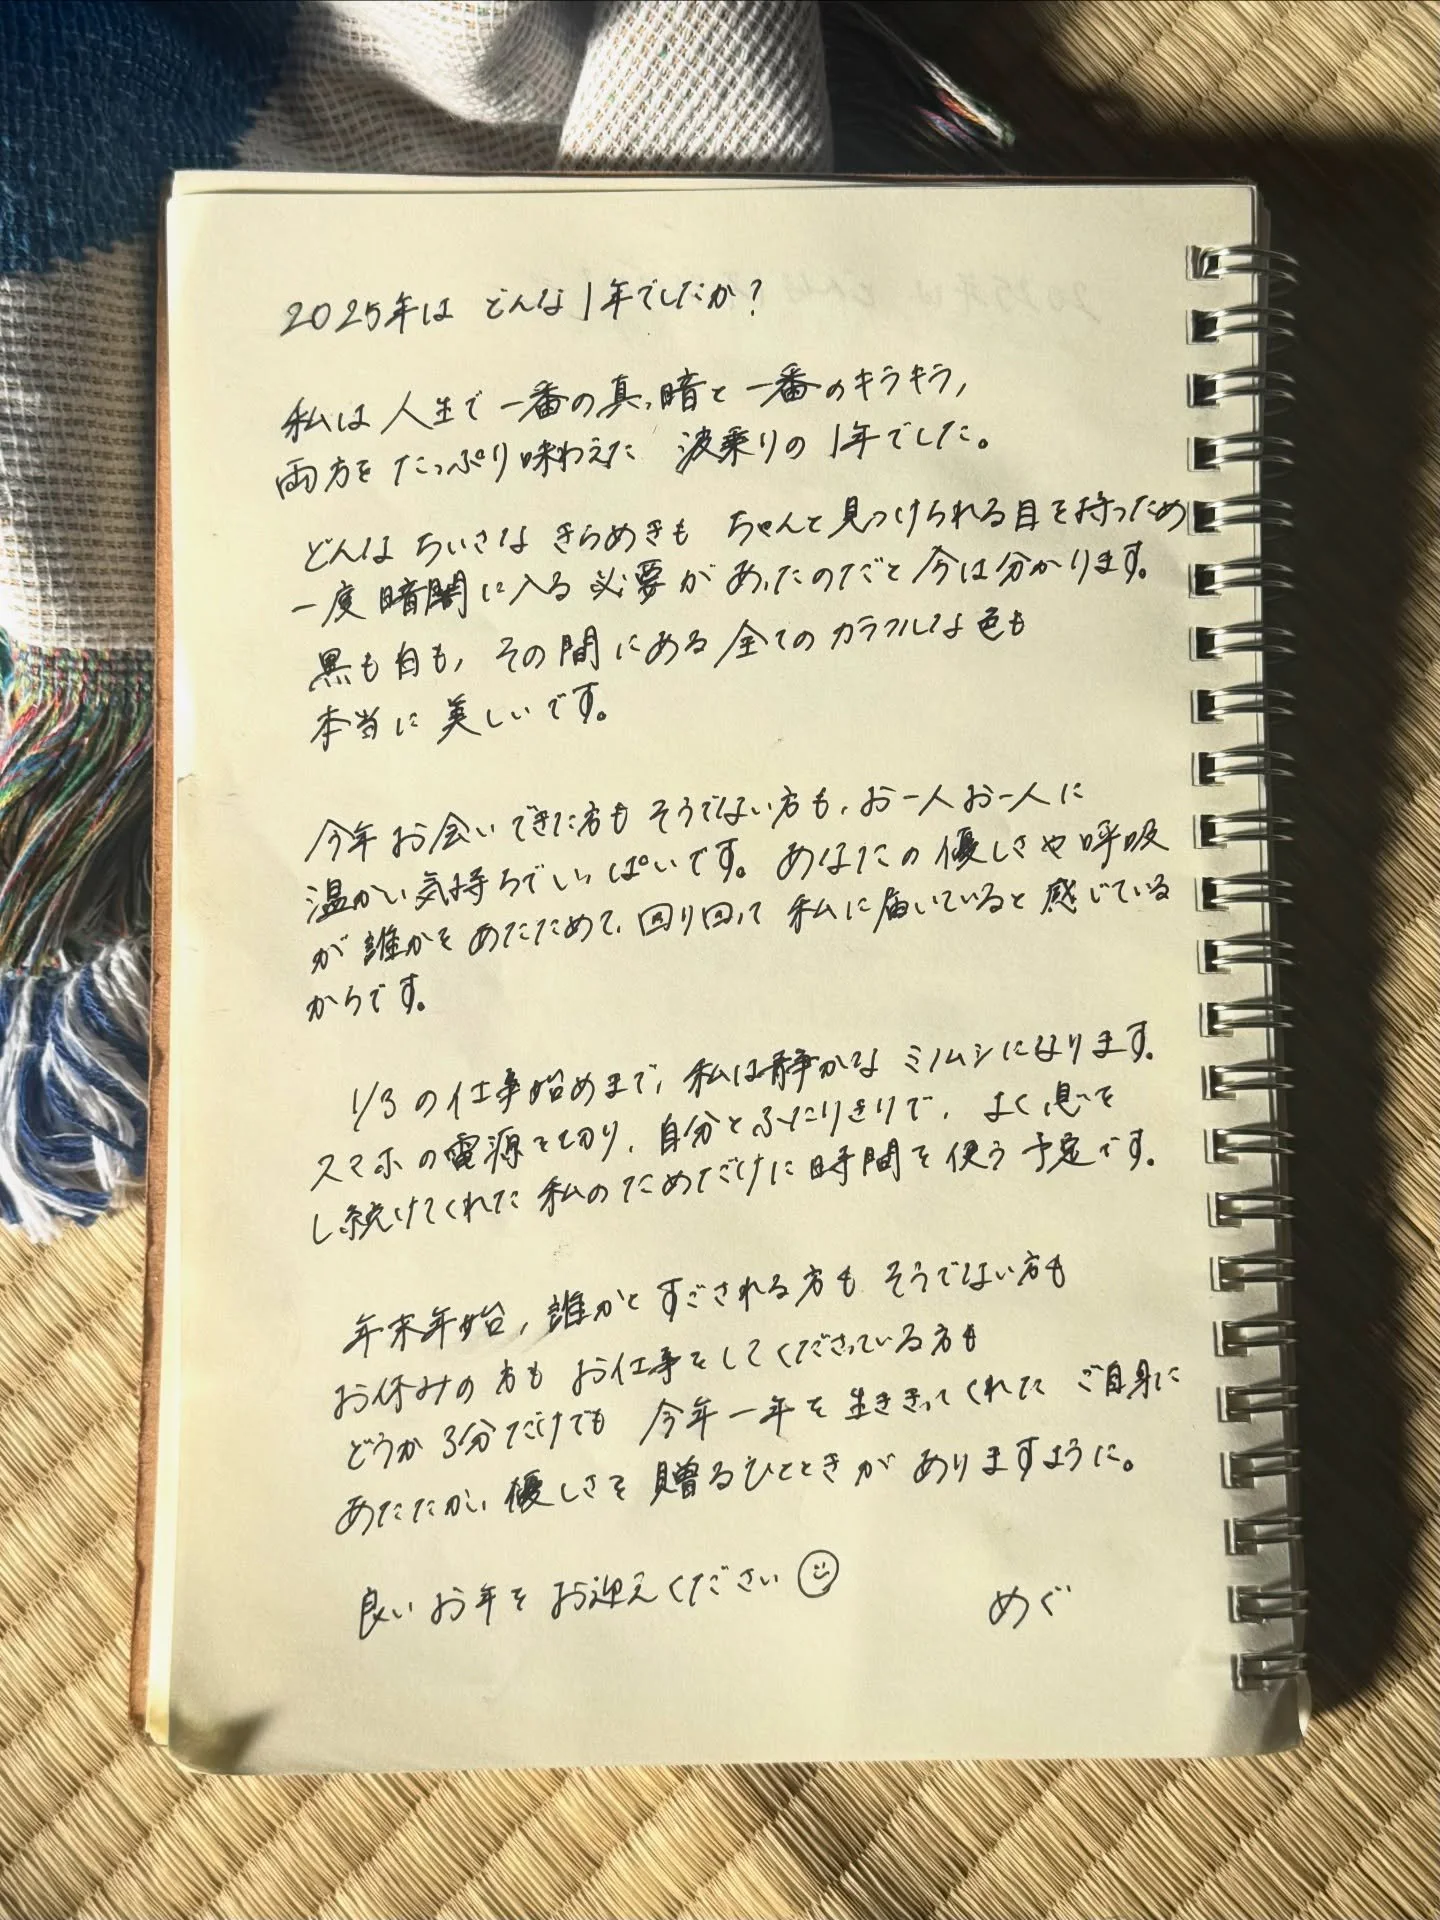 2025年は どんな1年でしたか?
私は人生で一番の真っ暗と一番のキラキラ,
両方をたっぷり味わえた 波乗りの1年でした。
どんなちいさなきらめきも ちゃんと見つけられる目を持つため
一度暗闇に入る必要があったのだと今は分かります。
黒も白も,その間にある全てのカラフルな色も
本当に美しいです。
今年お会いできた方もそうでない方も,お一人お一人に
温かい気持ちでいっぱいです。あなたの優しさや呼吸
が誰かをあたためて,回り回って私に届いていると感じている
からです。
1/3の仕事始めまで,私は静かなミノムシになります。
スマホの電源を切り,自分とふたりきりで,よく息を
し続けてくれた私のためだけに時間を使う予定です。
年末年始,誰かとすごされる方もそうでない方も
お休みの方もお仕事をしてくださっている方も
どうか3分だけでも今年一年を生ききってくれたご自身に
あたたかい優しさを贈るひとときがありますように。
良いお年をお迎えください☺
めぐ